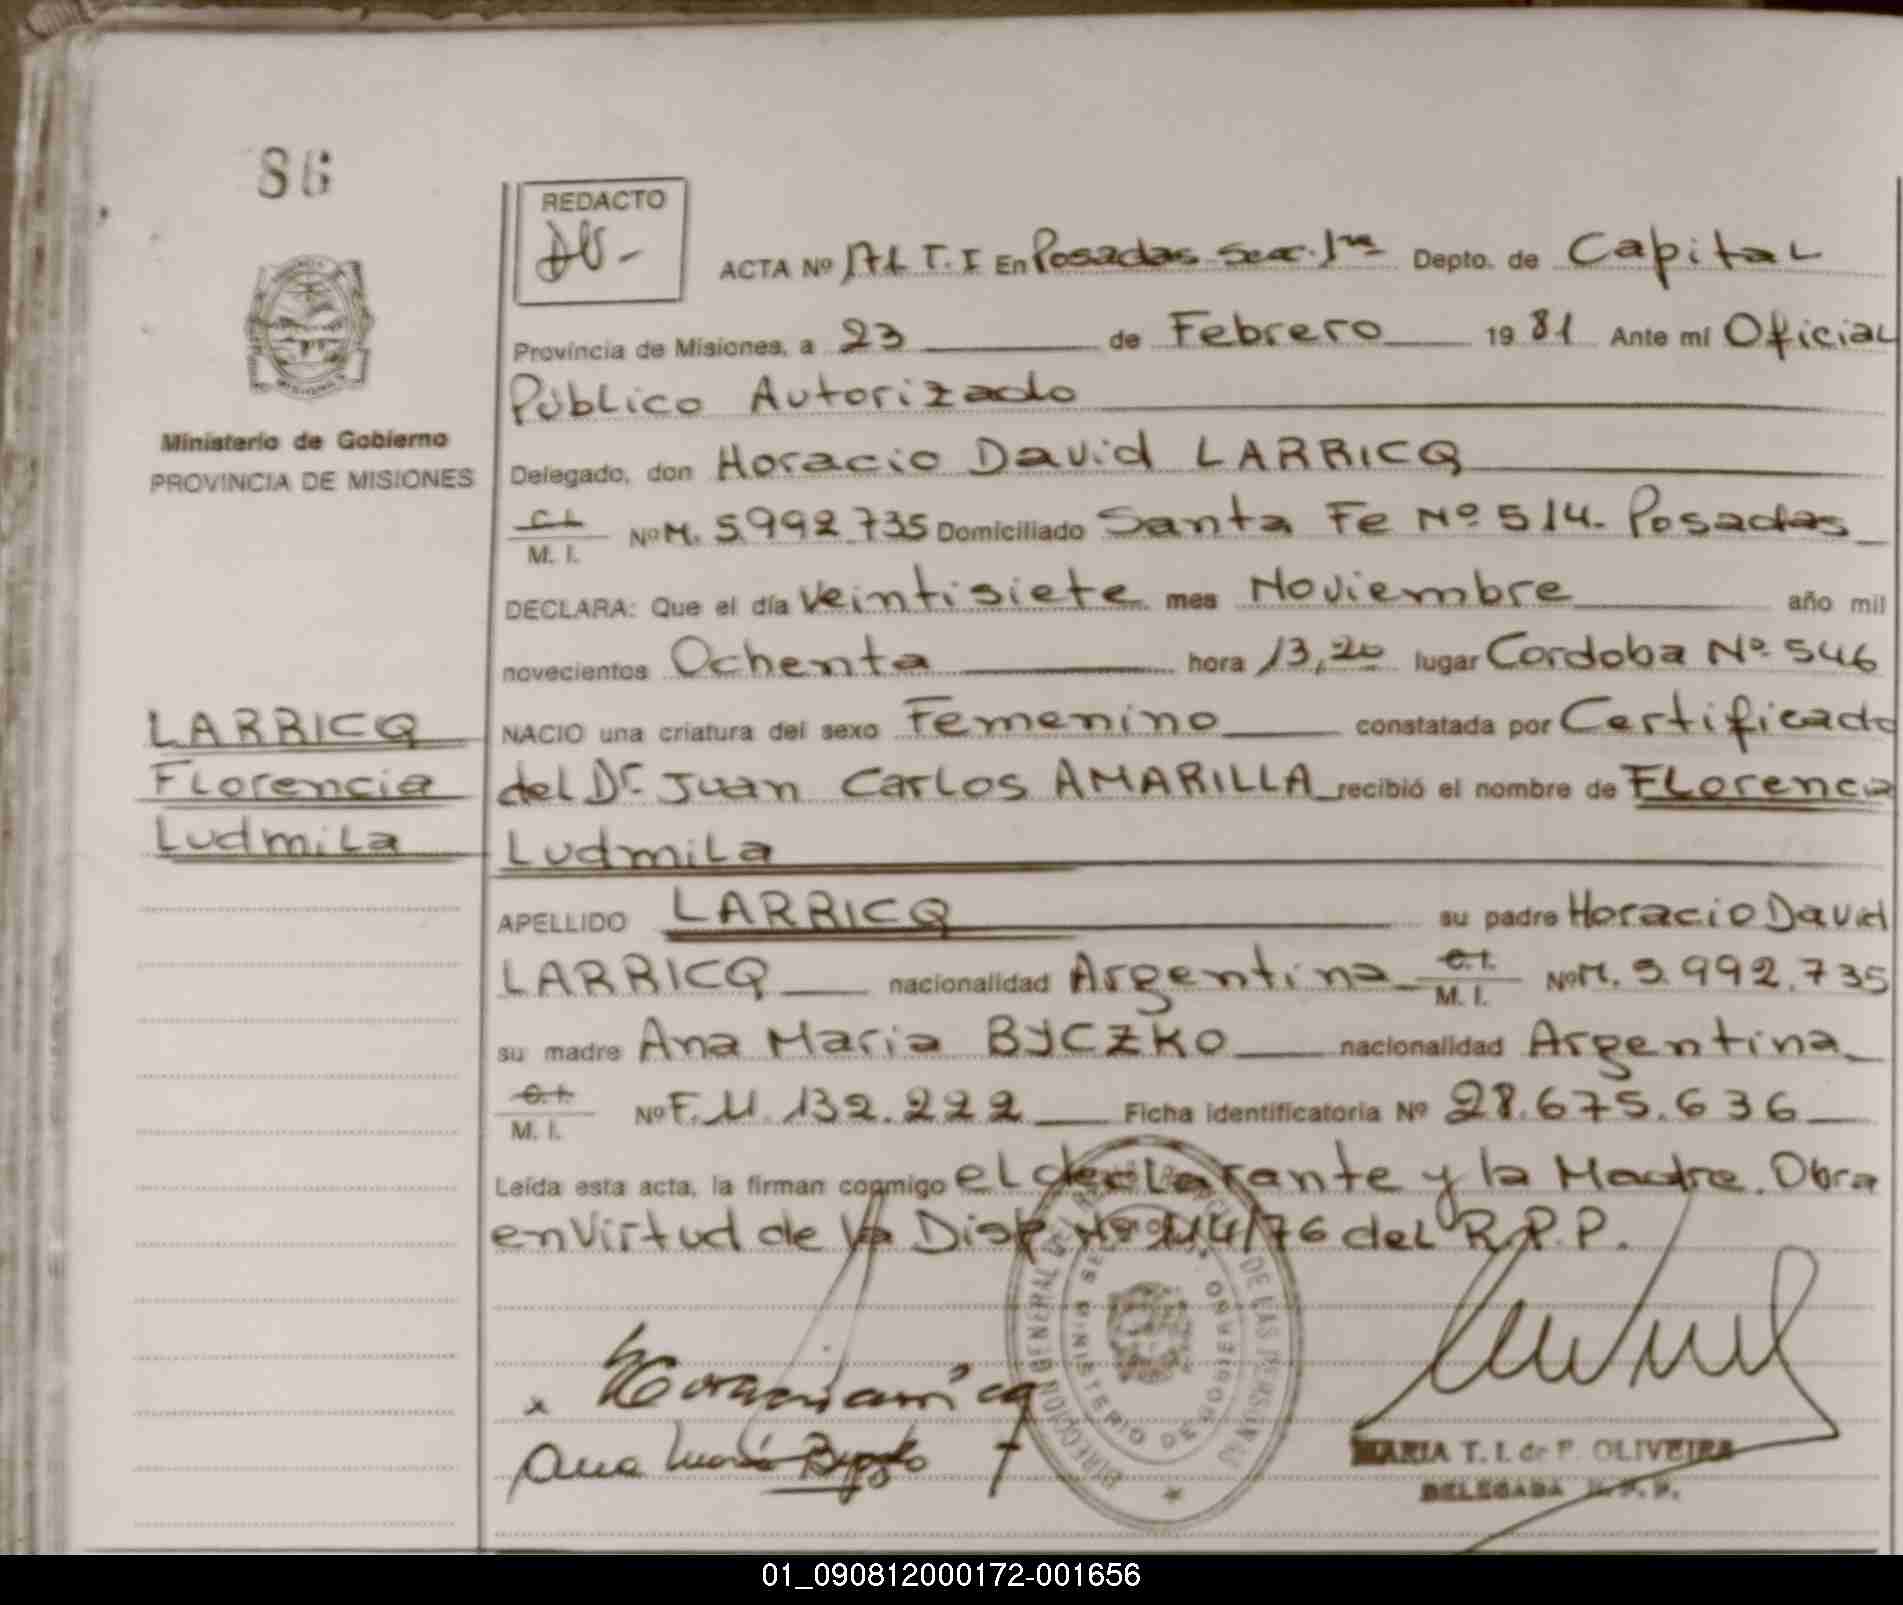 86
REDACTO
ACTA Nº 171 T. I En Posadas Secc. 1ra Depto. de Capital
Provincia de Misiones, a 23 de Febrero 1981 Ante mí Oficial
Público Autorizado
Ministerio de Gobierno
PROVINCIA DE MISIONES
Delegado, don Horacio David LARRICQ
C.I.
M. I. Nº M. 5.992.735 Domiciliado Santa Fe Nº 514. Posadas
DECLARA: Que el día Veintisiete mes Noviembre año mil
novecientos Ochenta hora 13,20 lugar Cordoba Nº 546
LARRICQ
Florencia
Ludmila
NACIO una criatura del sexo Femenino constatada por Certificado
del Dr. Juan Carlos AMARILLA recibió el nombre de Florencia
Ludmila
APELLIDO LARRICQ su padre Horacio David
LARRICQ nacionalidad Argentina C.I. M. I. Nº M. 5.992.735
su madre Ana Maria BYCZKO nacionalidad Argentina
C.I.
M. I. Nº F. 11.132.222 Ficha identificatoria Nº 28.675.636
Leída esta acta, la firman conmigo el declarante y la Madre. Obra
en Virtud de la Disp. Nº 914/76 del R.P.P.
DIRECCION GENERAL DEL DE LAS PERSONAS
MINISTERIO DE GOBIERNO
Ana María Byczko
MARIA T. I. de P. OLIVEIRA
DELEGADA R. P. P.
01_090812000172-001656